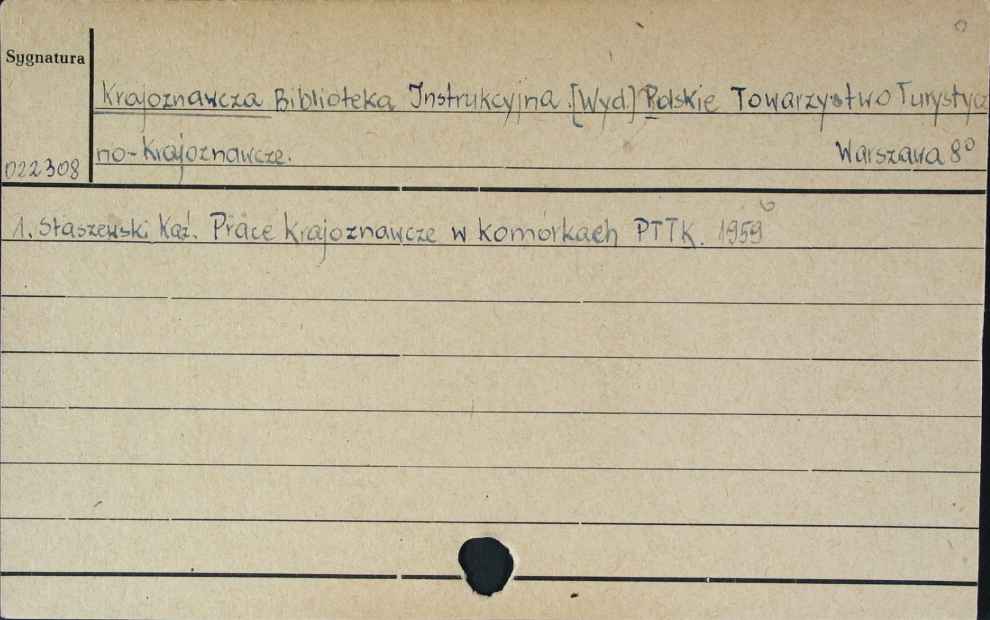 Sygnatura
Krajoznawcza Biblioteka Instrukcyjna. [Wyd.] Polskie Towarzystwo Turystycz
no-Krajoznawcze. Warszawa 8°
022308
1. Staszewski Kaź. Prace krajoznawcze w komórkach PTTK. 1959